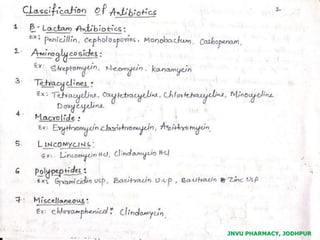 Classification Of Antibiotics
1 β - Lactam Antibiotics :
ex: Penicillin, Cepholosporins, Monobactum, Carbapenam,
2. Aminoglycosides :
Ex: Streptomycin, Neomycin, Kanamycin
3. Tetracyclines :
Ex: Tetracycline, Oxytetracycline, Chlortetracycline, Minocycline
Doxycycline
4. Macrolids :
Ex: Erythromycin, Azithromycin
5. LINCOMYCINS :
Ex: Lincomycin HCl, Clindamycin HCl
6 Polypeptides :
Ex: Gramicidin USP, Bacitracin U.S.P, Bacitracin Zinc USP
7. Miscellaneous :
Ex: Chloramphenicol : Clindamycin.
JNVU PHARMACY, JODHPUR